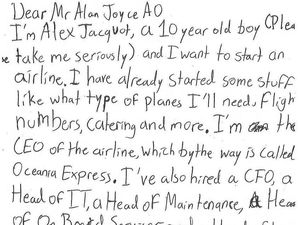 Dear Mr Alan Joyce AO
I'm Alex Jacquot, a 10 year old boy (Plea
e take me seriously) and I want to start an
airline. I have already started some stuff
like what type of planes I'll need. Fligh
numbers, catering and more. I'm the
CEO of the airline, which by the way is called
Oceania Express. I've also hired a CFO, a
Head of IT, a Head of Maintenance, A Hea
of On Board Services and a Head of